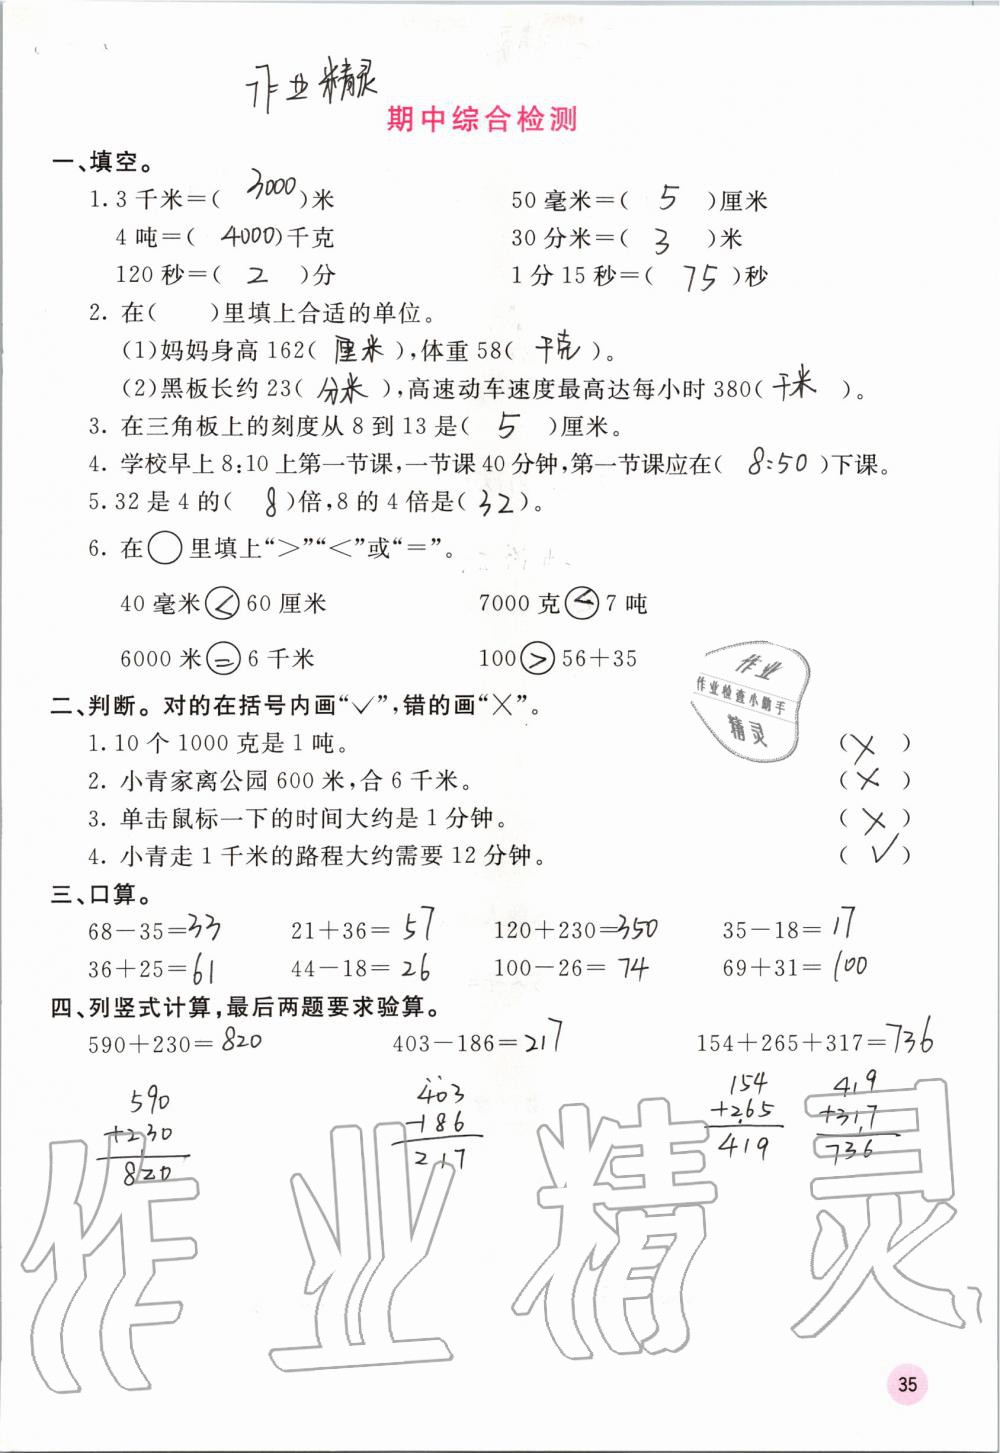 作业精灵
期中综合检测
一、填空。
1. 3千米=( 3000 )米 50毫米=( 5 )厘米
4吨=( 4000 )千克 30分米=( 3 )米
120秒=( 2 )分 1分15秒=( 75 )秒
2. 在( )里填上合适的单位。
(1)妈妈身高162( 厘米 ),体重58( 千克 )。
(2)黑板长约23( 分米 ),高速动车速度最高达每小时380( 千米 )。
3. 在三角板上的刻度从8到13是( 5 )厘米。
4. 学校早上8:10上第一节课,一节课40分钟,第一节课应在( 8:50 )下课。
5. 32是4的( 8 )倍,8的4倍是( 32 )。
6. 在○里填上“>”“<”或“=”。
40毫米<60厘米 7000克<7吨
6000米=6千米 100>56+35
作业
作业检查小助手
精灵
二、判断。对的在括号内画“✓”,错的画“×”。
1. 10个1000克是1吨。 ( × )
2. 小青家离公园600米,合6千米。 ( × )
3. 单击鼠标一下的时间大约是1分钟。 ( × )
4. 小青走1千米的路程大约需要12分钟。 ( ✓ )
三、口算。
68-35=33 21+36=57 120+230=350 35-18=17
36+25=61 44-18=26 100-26=74 69+31=100
四、列竖式计算,最后两题要求验算。
590+230=820 403-186=217 154+265+317=736
590 403 154 419
+230 -186 +265 +317
820 217 419 736
作业精灵
35